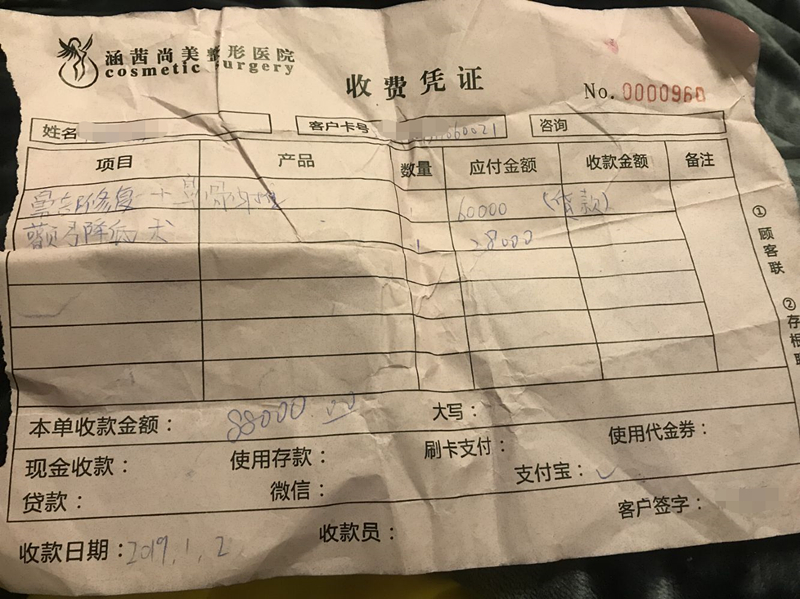 涵茜尚美整形医院
cosmetic surgery
收费凭证
No. 0000960
姓名 客户卡号 60021 咨询
项目 产品 数量 应付金额 收款金额 备注
鼻部修复+ 1 60000 (贷款)
颧弓降低术 1 28000
① 顾客联
② 存根联
本单收款金额： 88000.00 大写：
现金收款： 使用存款： 刷卡支付： 使用代金券：
贷款： 微信： 支付宝： ✓
收款日期：2019.1.2 收款员： 客户签字：